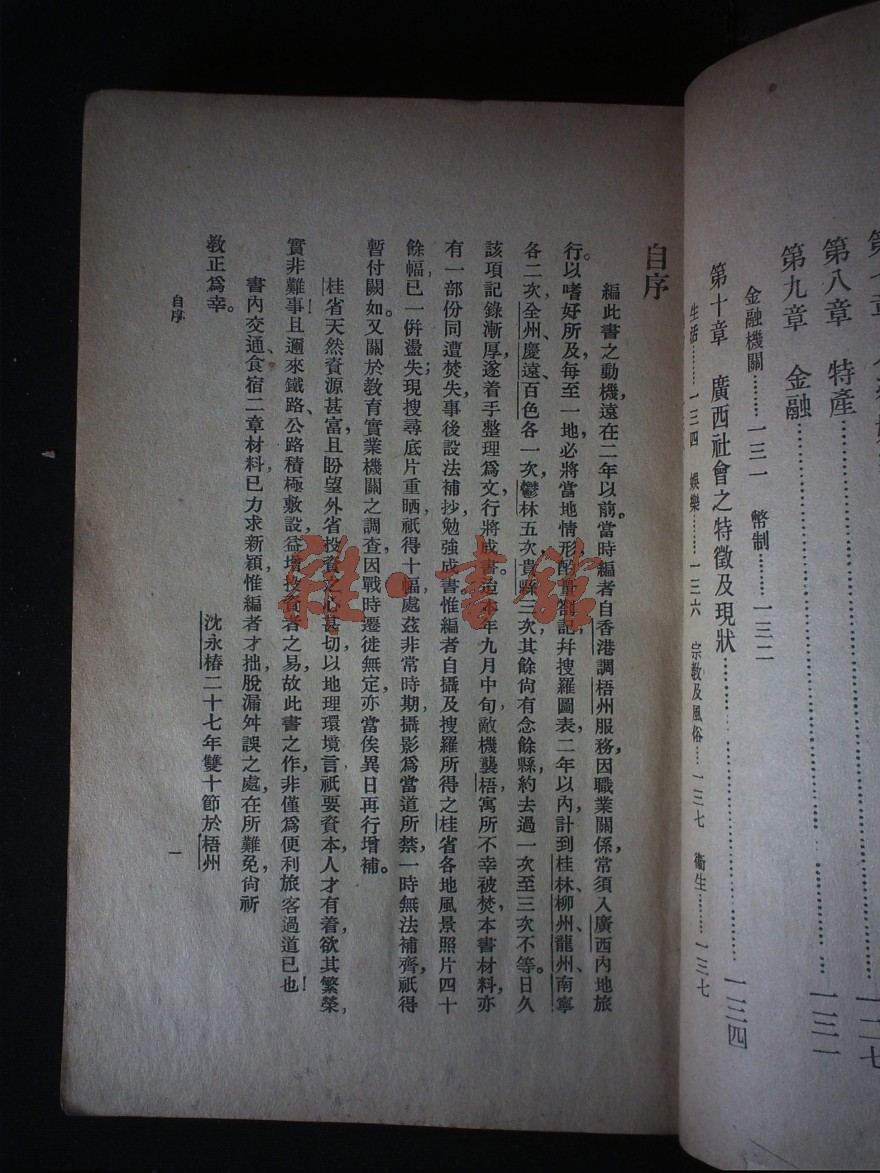 第八章　特產……………………一二七
第九章　金融……………………一三一
金融機關………一三一　幣制………一三二
第十章　廣西社會之特徵及現狀……………………一三四
生活………一三四　娛樂………一三六　宗教及風俗………一三七　衞生………一三七
自序
編此書之動機，遠在二年以前。當時編者自香港調梧州服務，因職業關係，常須入廣西內地旅
行。以嗜好所及，每至一地，必將當地情形，酌量劄記，幷搜羅圖表，二年以內，計到桂林、柳州、龍州、南寧
各二次，全州、慶遠、百色各一次，鬱林五次，貴縣三次，其餘尙有念餘縣，約去過一次至三次不等。日久
該項記錄漸厚，遂着手整理爲文，行將成書。迨本年九月中旬，敵機襲梧，寓所不幸被焚，本書材料，亦
有一部份同遭焚失，事後設法補抄，勉強成書，惟編者自攝及搜羅所得之桂省各地風景照片四十
餘幅，已一併盪失；現搜尋底片重晒，祇得十幅，處茲非常時期，攝影爲當道所禁，一時無法補齊，祇得
暫付闕如。又關於教育實業機關之調查，因戰時遷徙無定，亦當俟異日再行增補。
桂省天然資源甚富，且盼望外省投資之心甚切，以地理環境言，祇要資本人才有着，欲其繁榮，
實非難事！且邇來鐵路、公路積極敷設，益增投資者之易，故此書之作，非僅爲便利旅客過道已也！
書內交通、食宿二章材料，已力求新穎，惟編者才拙，脫漏舛誤之處，在所難免，尙祈
教正爲幸。
沈永椿二十七年雙十節於梧州
自序
一
雜·書館